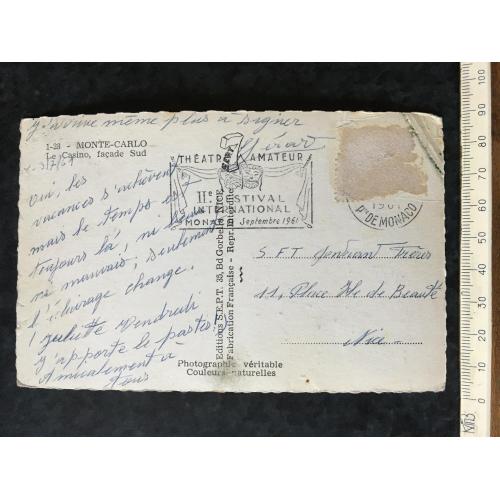 J'arrive même plus à signer
Gérard
1-28 - MONTE-CARLO
Le Casino, façade Sud
Oui, les
vacances s'achèvent
mais le temps est
toujours là, ni beau
ni mauvais; seulement
l'éclairage change.
Juliette Vendredi
j'apporte le pastis!
Amicalement à
tous
THÉATRE AMATEUR
IIe FESTIVAL
INTERNATIONAL
MONACO Septembre 1961
1961
Pté DE MONACO
Editions S.E.P.T. 35, Bd Gorbella NICE
Fabrication Française - Reproduction
S.F.T. Frères
11, Place Ile de Beauté
Nice
Photographie véritable
Couleurs naturelles
10
20
30
40
50
60
70
80
90
100